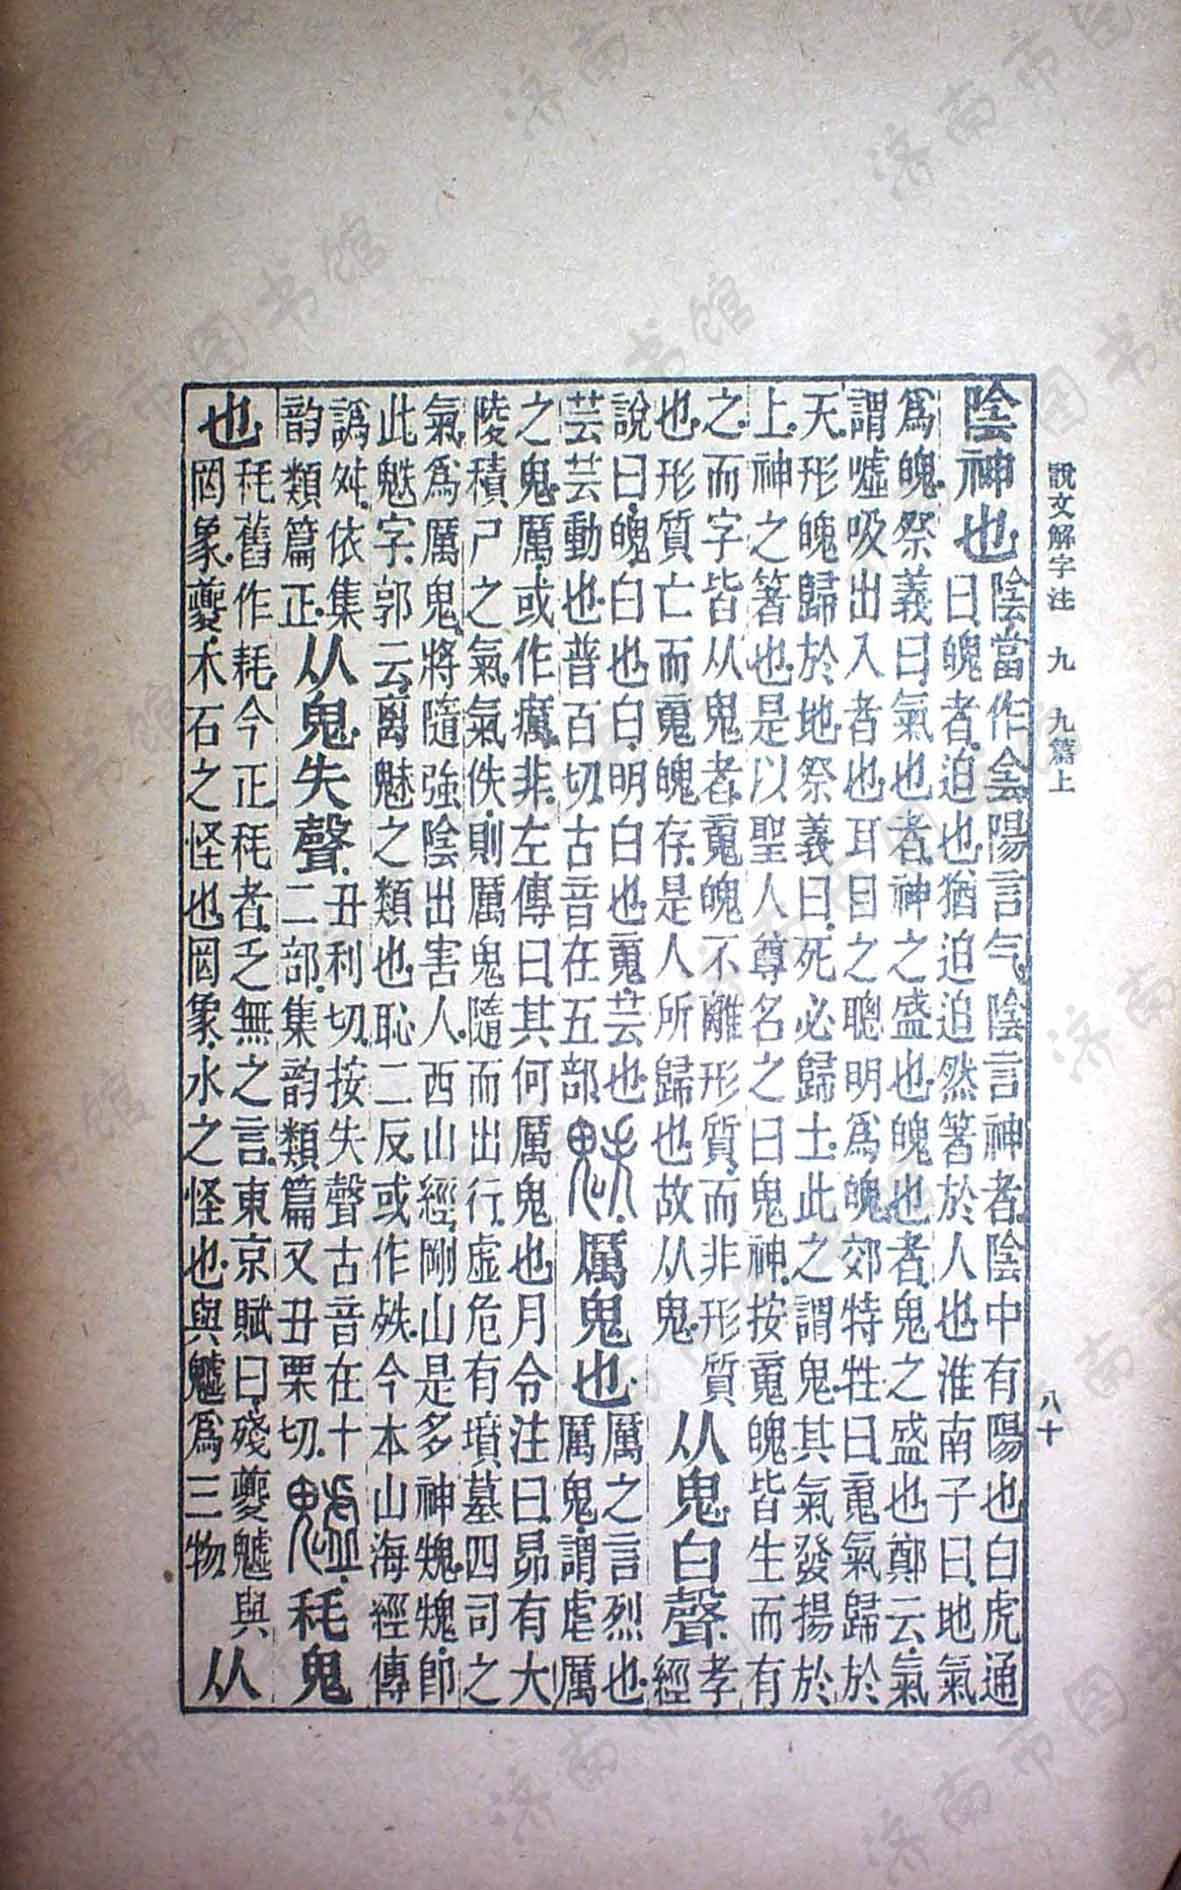 陰神也
陰當作侌陽言气陰言神者陰中有陽也白虎通
曰魄者迫也猶迫迫然箸於人也淮南子曰地氣
爲魄祭義曰氣也者神之盛也魄也者鬼之盛也鄭云氣
謂噓吸出入者也耳目之聰明爲魄郊特牲曰䰟氣歸於
天形魄歸於地祭義曰死必歸土此之謂鬼其氣發揚於
上神之箸也是以聖人尊名之曰鬼神按䰟魄皆生而有
之而字皆从鬼者䰟魄不離形質而非形質
也形質亡而䰟魄存是人所歸也故从鬼
从鬼白聲
孝
經
說曰魄白也白明白也䰟芸也
芸芸動也普百切古音在五部
䰡厲鬼也
厲之言烈也
厲鬼謂虐厲
之鬼厲或作癘非左傳曰其何厲鬼也月令注曰昴有大
陵積尸之氣氣佚則厲鬼隨而出行虛危有墳墓四司之
氣爲厲鬼將隨強陰出害人西山經剛山是多神䰠䰠卽
此䰡字郭云离魅之類也恥二反或作今本山海經傳
譌舛依集
韵類篇正
从鬼失聲
丑利切按失聲古音在十
二部集韵類篇又丑栗切
魖秏鬼
也
秏舊作耗今正秏者乏無之言東京賦曰殘夔魖與
罔象夔木石之怪也罔象水之怪也與魖爲三物
从
說文解字注 九 九篇上 八十